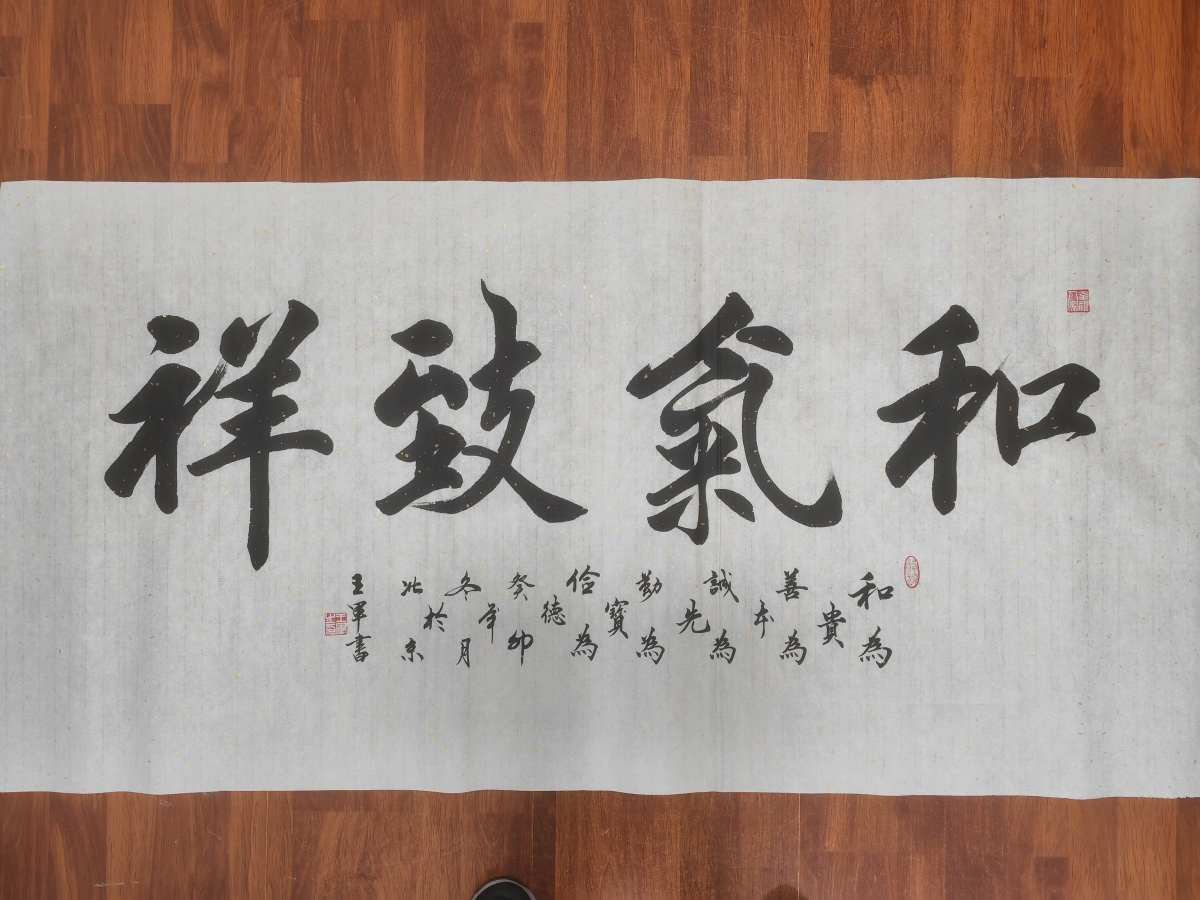 和氣致祥
和為
貴
善為
本
誠為
先
勤為
寶
儉為
德
癸卯
年
冬月
於
北京
王軍書